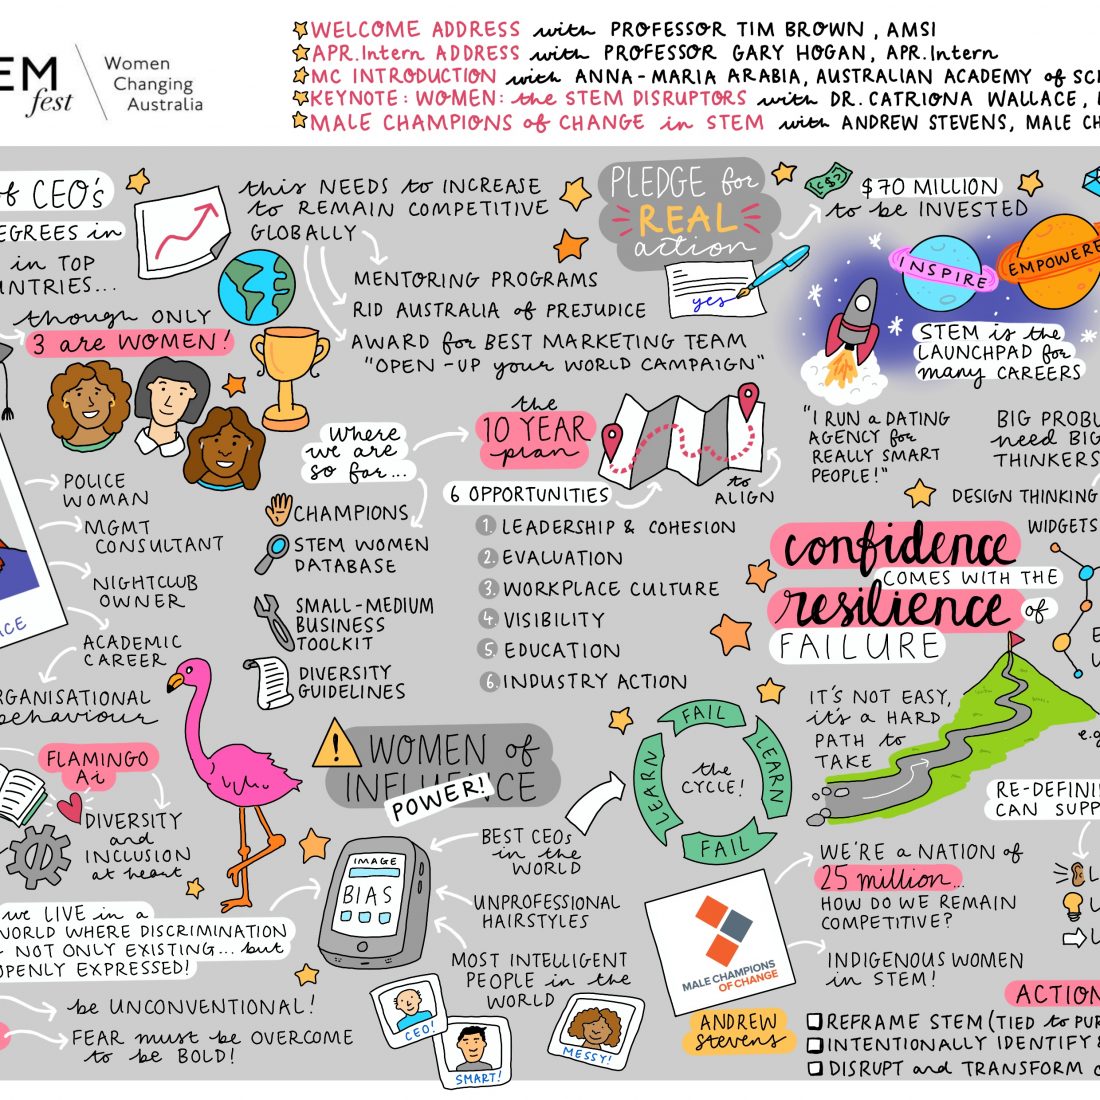 EM
fest
Women
Changing
Australia
WELCOME ADDRESS with PROFESSOR TIM BROWN, AMSI
APR.Intern ADDRESS with PROFESSOR GARY HOGAN, APR.Intern
MC INTRODUCTION with ANNA-MARIA ARABIA, AUSTRALIAN ACADEMY of SC
KEYNOTE: WOMEN: the STEM DISRUPTORS with DR. CATRIONA WALLACE,
MALE CHAMPIONS of CHANGE in STEM with ANDREW STEVENS, MALE CH
of CEO's
EGREES in
in TOP
NTRIES...
though ONLY
3 are WOMEN!
this NEEDS to INCREASE
to REMAIN COMPETITIVE
GLOBALLY
MENTORING PROGRAMS
RID AUSTRALIA of PREJUDICE
AWARD for BEST MARKETING TEAM
"OPEN-UP your WORLD CAMPAIGN"
PLEDGE for
REAL
action
yes
$70 MILLION
to be INVESTED
INSPIRE
EMPOWERE
STEM is the
LAUNCHPAD for
many CAREERS
"I RUN a DATING
AGENCY for
REALLY SMART
PEOPLE!"
BIG PROBL
need BIG
THINKERS
DESIGN THINKING
WIDGETS
POLICE
WOMAN
MGMT
CONSULTANT
NIGHTCLUB
OWNER
ACADEMIC
CAREER
RGANISATIONAL
behaviour
ACE
where
we are
so far...
CHAMPIONS
STEM WOMEN
DATABASE
SMALL-MEDIUM
BUSINESS
TOOLKIT
DIVERSITY
GUIDELINES
the
10 YEAR
plan
to
ALIGN
6 OPPORTUNITIES
1. LEADERSHIP & COHESION
2. EVALUATION
3. WORKPLACE CULTURE
4. VISIBILITY
5. EDUCATION
6. INDUSTRY ACTION
confidence
COMES WITH THE
resilience of
FAILURE
IT'S NOT EASY,
it's a HARD
PATH to
TAKE
e.g
RE-DEFINI
CAN SUPP
FLAMINGO
Ai
DIVERSITY
and
INCLUSION
at heart
we LIVE in a
WORLD WHERE DISCRIMINATION
NOT ONLY EXISTING... but
OPENLY EXPRESSED!
be UNCONVENTIONAL!
FEAR must be OVERCOME
to be BOLD!
WOMEN of
INFLUENCE
POWER!
IMAGE
BIAS
BEST CEOs
in the
WORLD
UNPROFESSIONAL
HAIRSTYLES
MOST INTELLIGENT
PEOPLE in the
WORLD
CEO!
SMART!
MESSY!
FAIL
LEARN
FAIL
LEARN
the
CYCLE!
WE'RE a NATION of
25 million...
HOW DO WE REMAIN
COMPETITIVE?
INDIGENOUS WOMEN
in STEM!
MALE CHAMPIONS
OF CHANGE
ANDREW
Stevens
ACTION
REFRAME STEM (TIED to PUR
INTENTIONALLY IDENTIFY &
DISRUPT and TRANSFORM